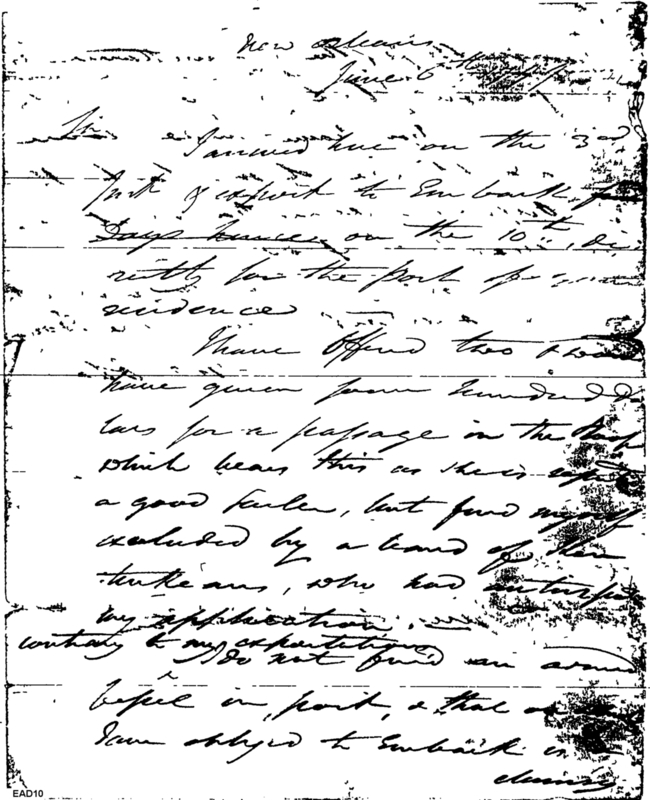 New Orleans
June 6th
Sir
I arrived here on the 3rd
Inst & expect to Embark
Days hence on the 10th, di
rectly for the port of
residence
I have offered two &
have given four hundred Do
lars for a passage in the
which bears this as she is
a good sailer, but find myself
excluded by a band of Ken
tukeans, who had
my application.
contrary to my expectations
I do not find an armed
vessel in port, & that
I am obliged to Embark in
clumsy
EAD10